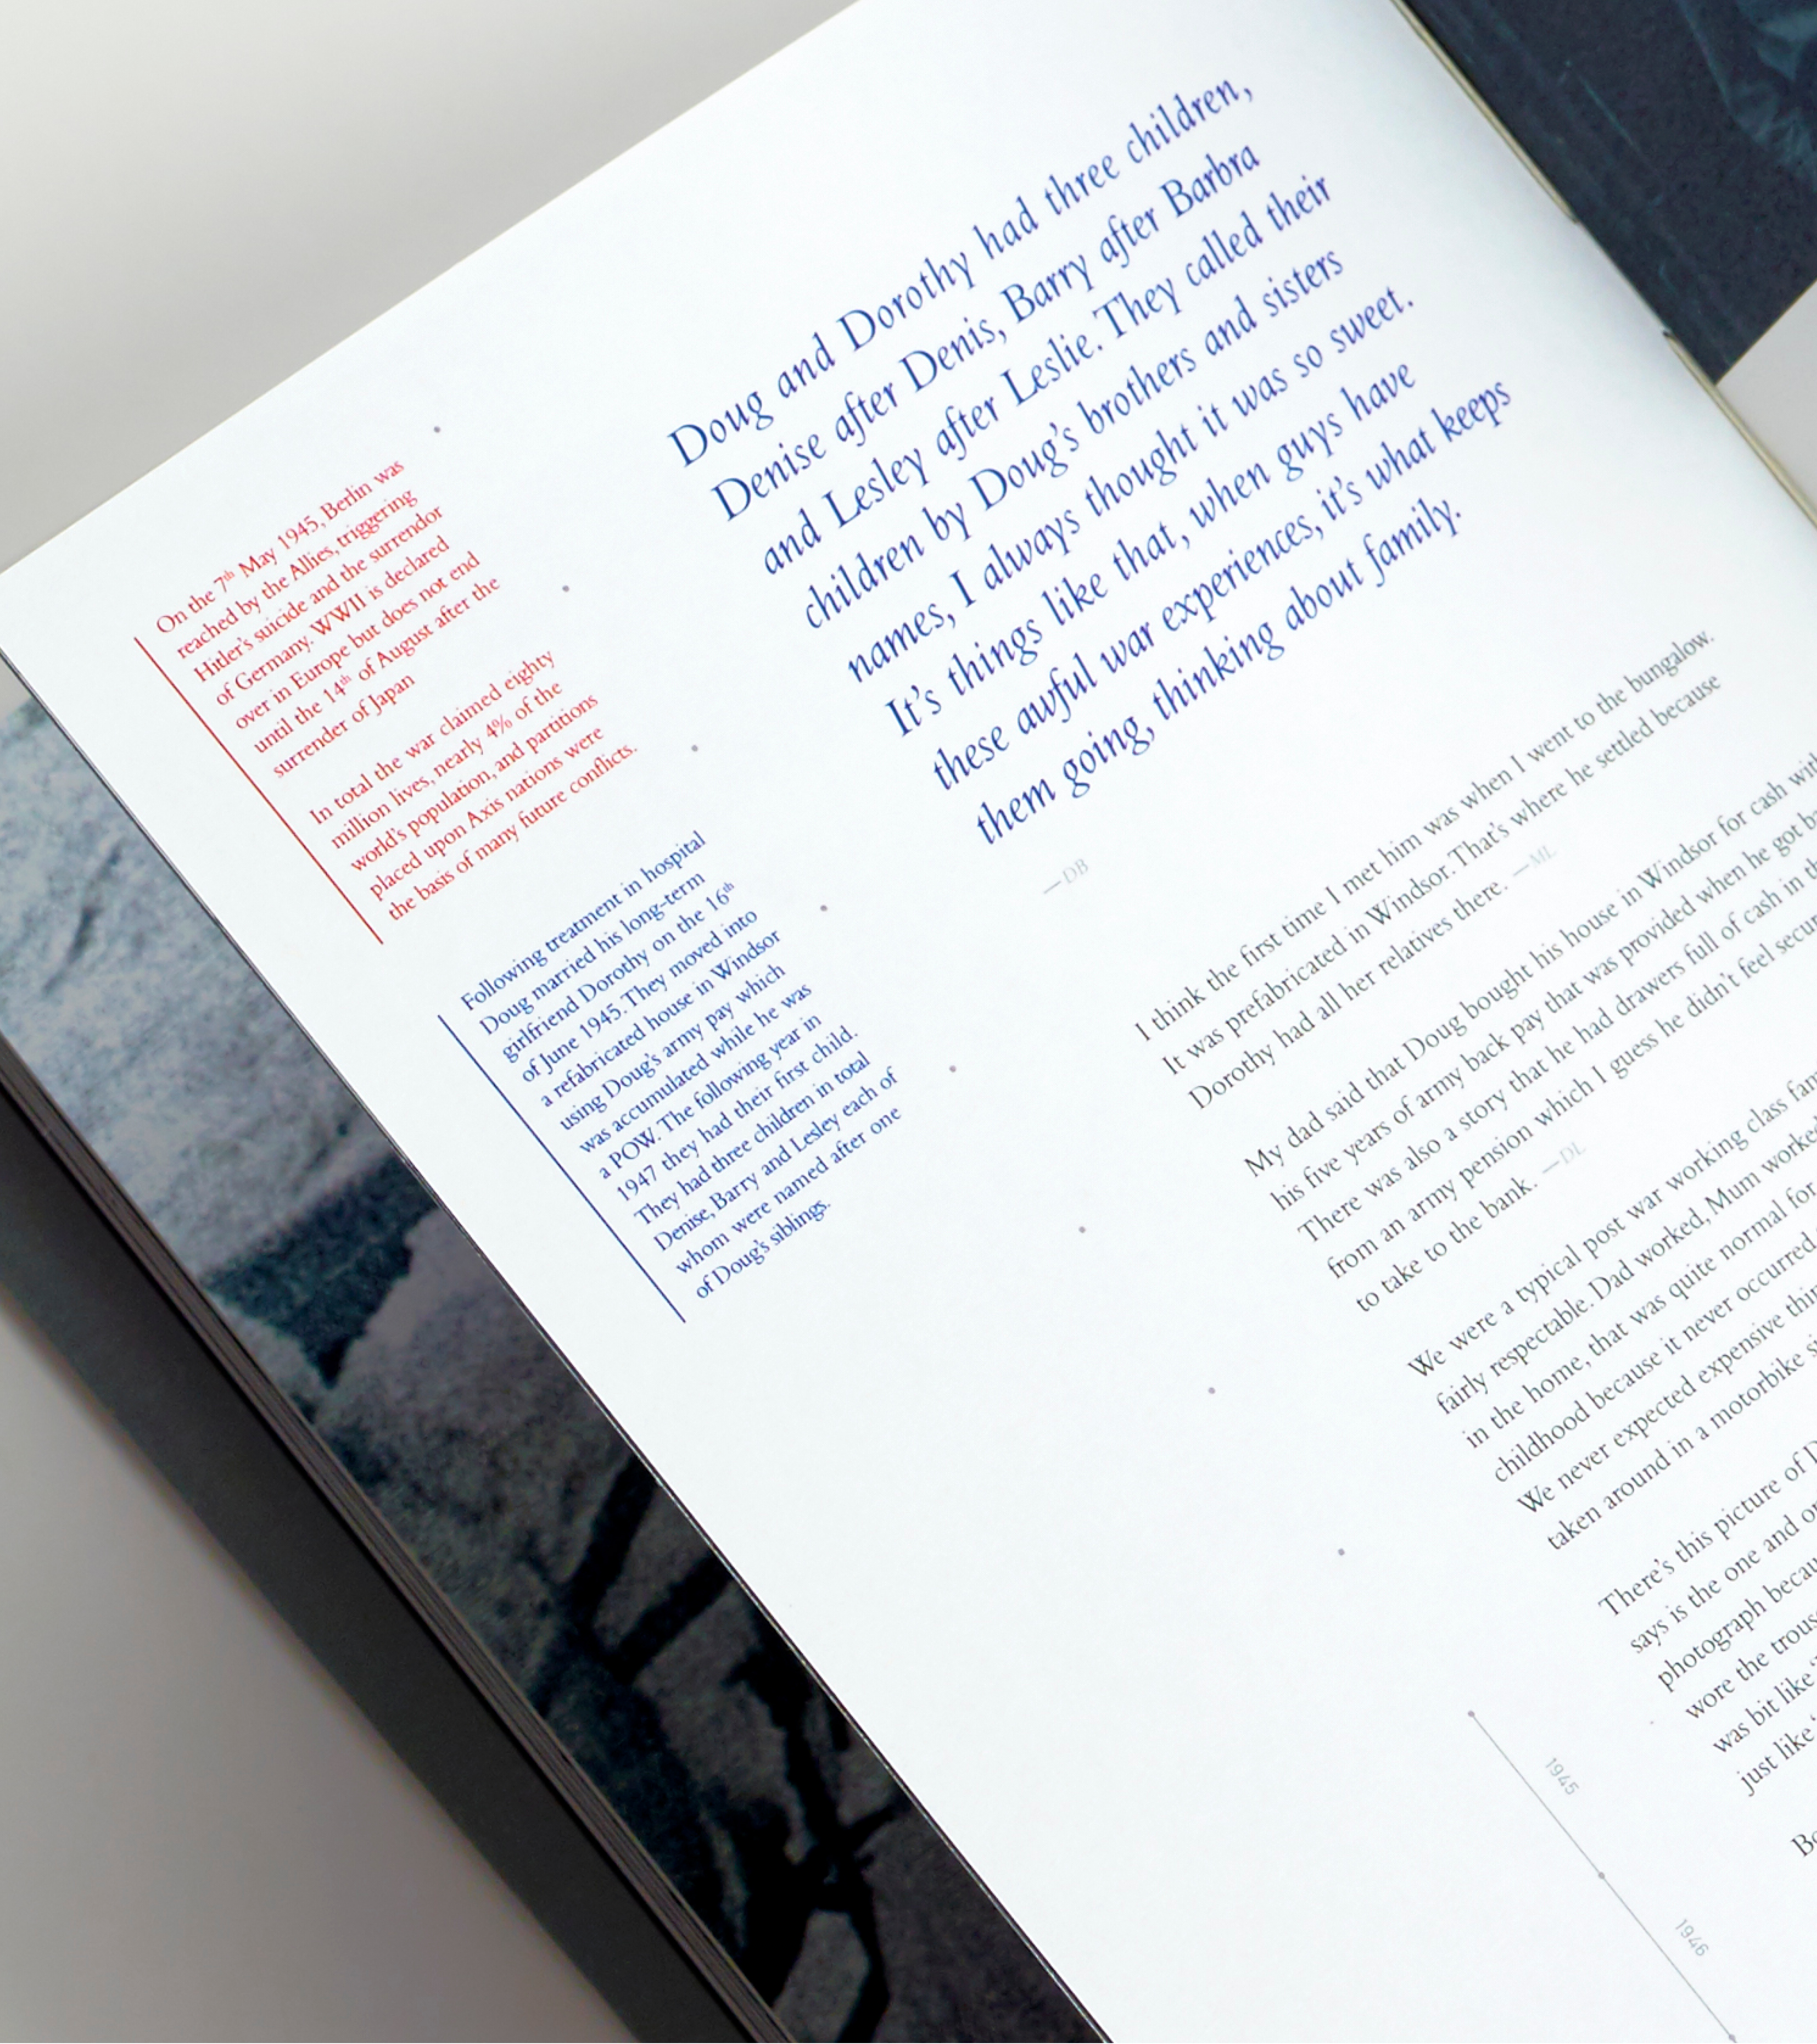 Doug and Dorothy had three children,
Denise after Denis, Barry after Barbra
and Lesley after Leslie. They called their
children by Doug's brothers and sisters
names, I always thought it was so sweet.
It's things like that, when guys have
these awful war experiences, it's what keeps
them going, thinking about family.
—DB
On the 7th May 1945, Berlin was
reached by the Allies, triggering
Hitler's suicide and the surrendor
of Germany. WWII is declared
over in Europe but does not end
until the 14th of August after the
surrender of Japan
In total the war claimed eighty
million lives, nearly 4% of the
world's population, and partitions
placed upon Axis nations were
the basis of many future conflicts.
Following treatment in hospital
Doug married his long-term
girlfriend Dorothy on the 16th
of June 1945. They moved into
a refabricated house in Windsor
using Doug's army pay which
was accumulated while he was
a POW. The following year in
1947 they had their first child.
They had three children in total
Denise, Barry and Lesley each of
whom were named after one
of Doug's siblings.
I think the first time I met him was when I went to the bungalow.
It was prefabricated in Windsor. That's where he settled because
Dorothy had all her relatives there. —ML
My dad said that Doug bought his house in Windsor for cash with
his five years of army back pay that was provided when he got
There was also a story that he had drawers full of cash in
from an army pension which I guess he didn't feel
to take to the bank. —DL
We were a typical post war working class
fairly respectable. Dad worked, Mum worked
in the home, that was quite normal for
childhood because it never occurred
We never expected expensive
taken around in a motorbike
There's this picture of
says is the one and
photograph
wore the
was bit like
just like
1945
1946